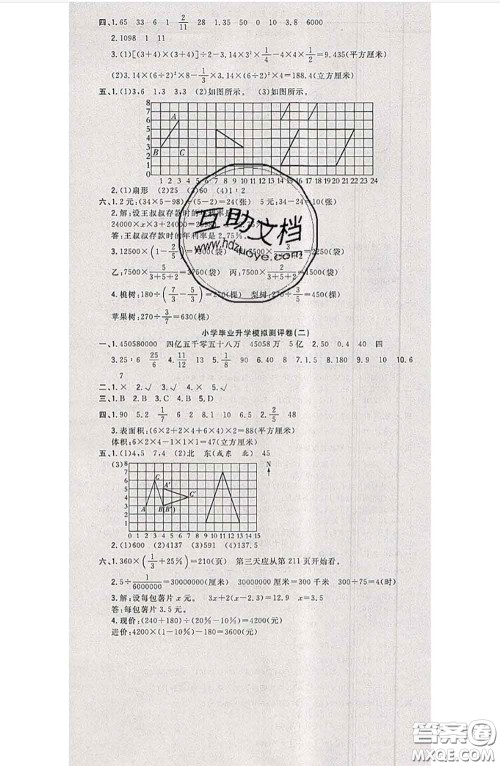 四、1. 65 33 6 1 2/11 28 1.35 50 0 10 3.8 6000
2. 1098 1 11
3. (1)[(3+4)×(3+4)]÷2-3.14×3²×1/4-4×4÷2=9.435(平方厘米)
(2)3.14×(6÷2)²×8-1/3×3.14×(6÷2)²×4=188.4(立方厘米)
五、1. (1)3,6 1,3 (2)如图所示。 (3)如图所示。
8
7
6
5
4
3
2
1
A
B
C
0 1 2 3 4 5 6 7 8 9 10 11 12 13 14 15 16 17 18 19 20 21 22 23 24
2. (1)扇形 (2)25 (3)60 (4)1:2
六、1. 2元:(34×5-98)÷(5-2)=24(张) 5元:34-24=10(张)
2. 解:设王叔叔存款时的年利率
24000
答:王叔叔存款时的年利率是2.75%。
3. 12500×(1-
乙:7500× =2500(袋) 丙:7500× =2250(袋)
4. 植树:180÷ =450(棵) 梨树:450×3/5=270(棵)
苹果树:270÷ =630(棵)
小学毕业升学模拟测评卷(二)
一、1. 450580000 四亿五千零五十八万 45058万 5亿 2. 50 0.4 40 四
3. 25:6 25/6 4. 11/12 5. 13 6. 75 7. 339.12 8. 9 9. 10 10. 6
7
二、1. × 2. √ 3. √ 4. ×
三、1. B 2. A 3. C 4. B 5. D
四、1. 90 5.2 1/7 6 2 8.1 10 6.5 2. 0.5 8 19
3. 表面积:(6×2+2×4+6×4)×2=88(平方厘米)
体积:6×2×4-1×1×1=47(立方厘米)
五、1. (1)4,5 7,4 (2)北 东(或东 北) 45
(3)
8
7
6
5
4
3
2
1
C
A'
C'
A
B(B')
N
0 1 2 3 4 5 6 7 8 9 10 11 12 13 14 15
2. (1)600 (2)4137 (3)591 (4)9540
六、1. 360×(1/3+25%)=210(页) 第三天应从第211页开始看。
2. 5÷1/6000000=30000000(厘米) 30000000厘米=300千米 300÷75=4(时)
3. 解:设每包薯片x元。 3x+2(x-2.3)=12.9 x=3.5
答:每包薯片3.5元。
4. 现价:(240+180)÷(20%-10%)=4200(元)
进价:4200×(1-10%)-180=3600(元)
互助文档
www.hdzuoye.com
答案圈
MXQE.COM